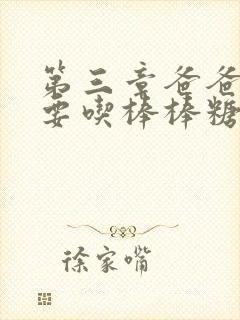 第三章爸爸
要喫棒棒糖
徐家嘴